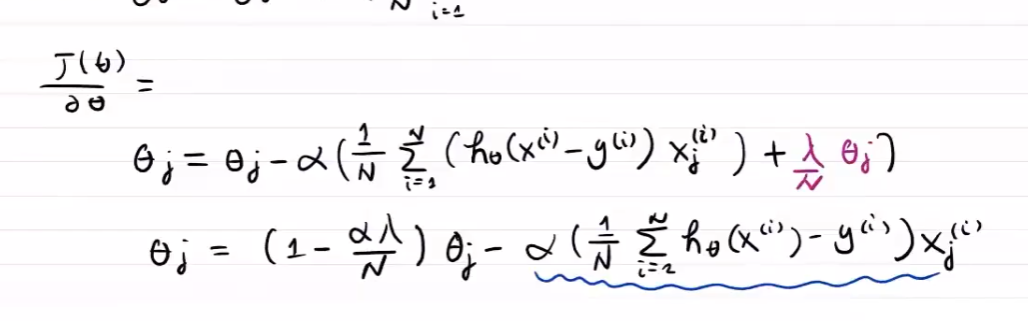 N i=1
J(θ)/∂θ =
θj = θj - α(1/N Σ_{i=1}^{N} (hθ(x^(i) - y^(i)) xj^(i)) + λ/N θj)
θj = (1 - αλ/N) θj - α(1/N Σ_{i=1}^{N} hθ(x^(i)) - y^(i)) xj^(i)